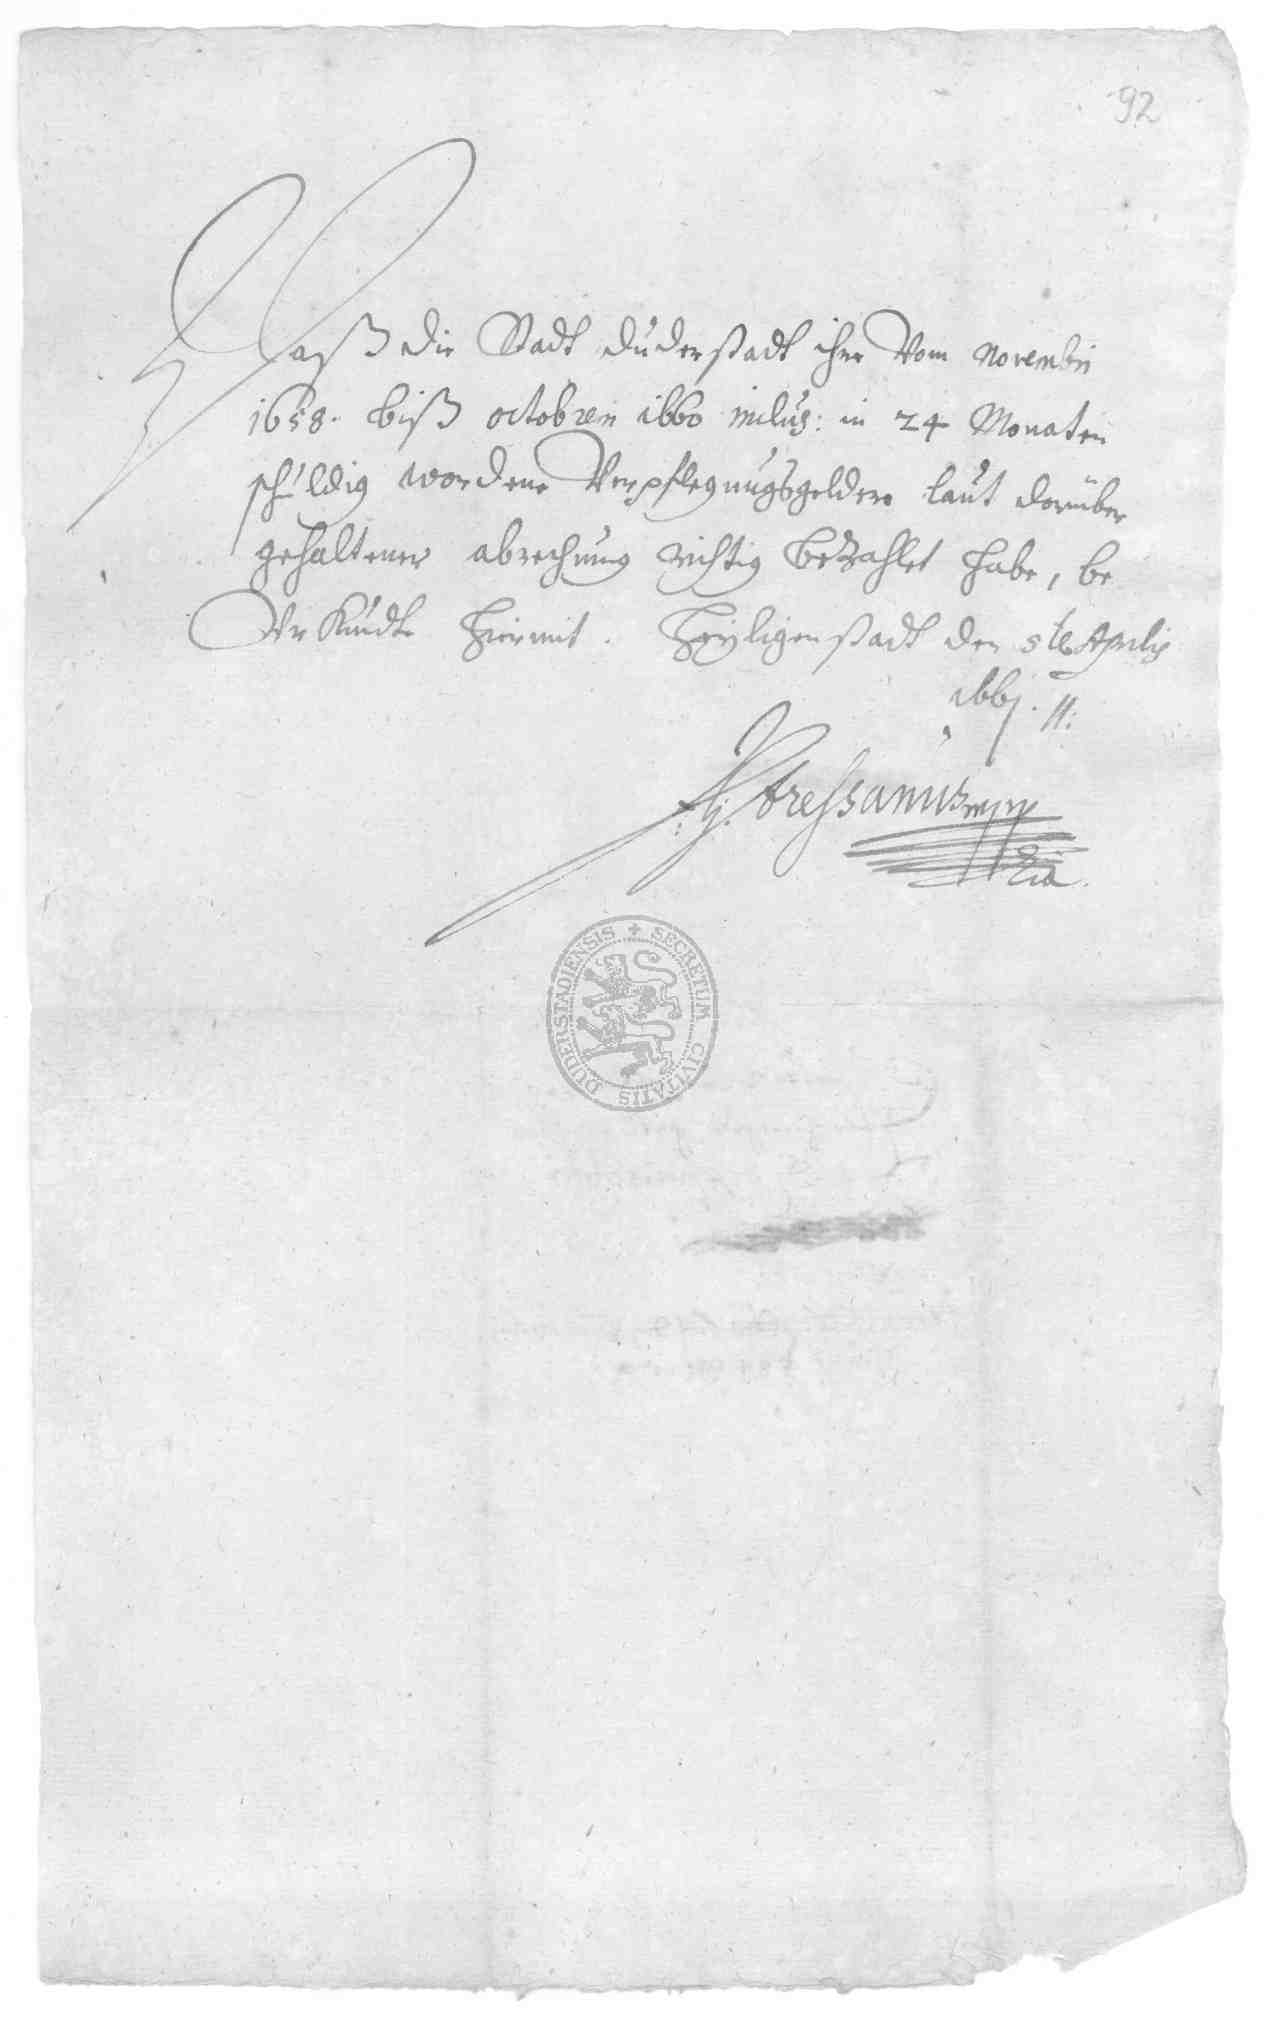 92
Daß die Stadt Duderstadt ihre Vom Novembri
1658. biß octobrem 1660 inclus: in 24 Monaten
schuldig wordene Verpflegungsgeldere laut darüber
gehaltener abrechnung richtig bezahlet habe, be
Vrkundt hiermit. Heyligenstadt den 5te Aprilis
1661.
SECRETUM CIVITATIS DUDERSTADIENSIS